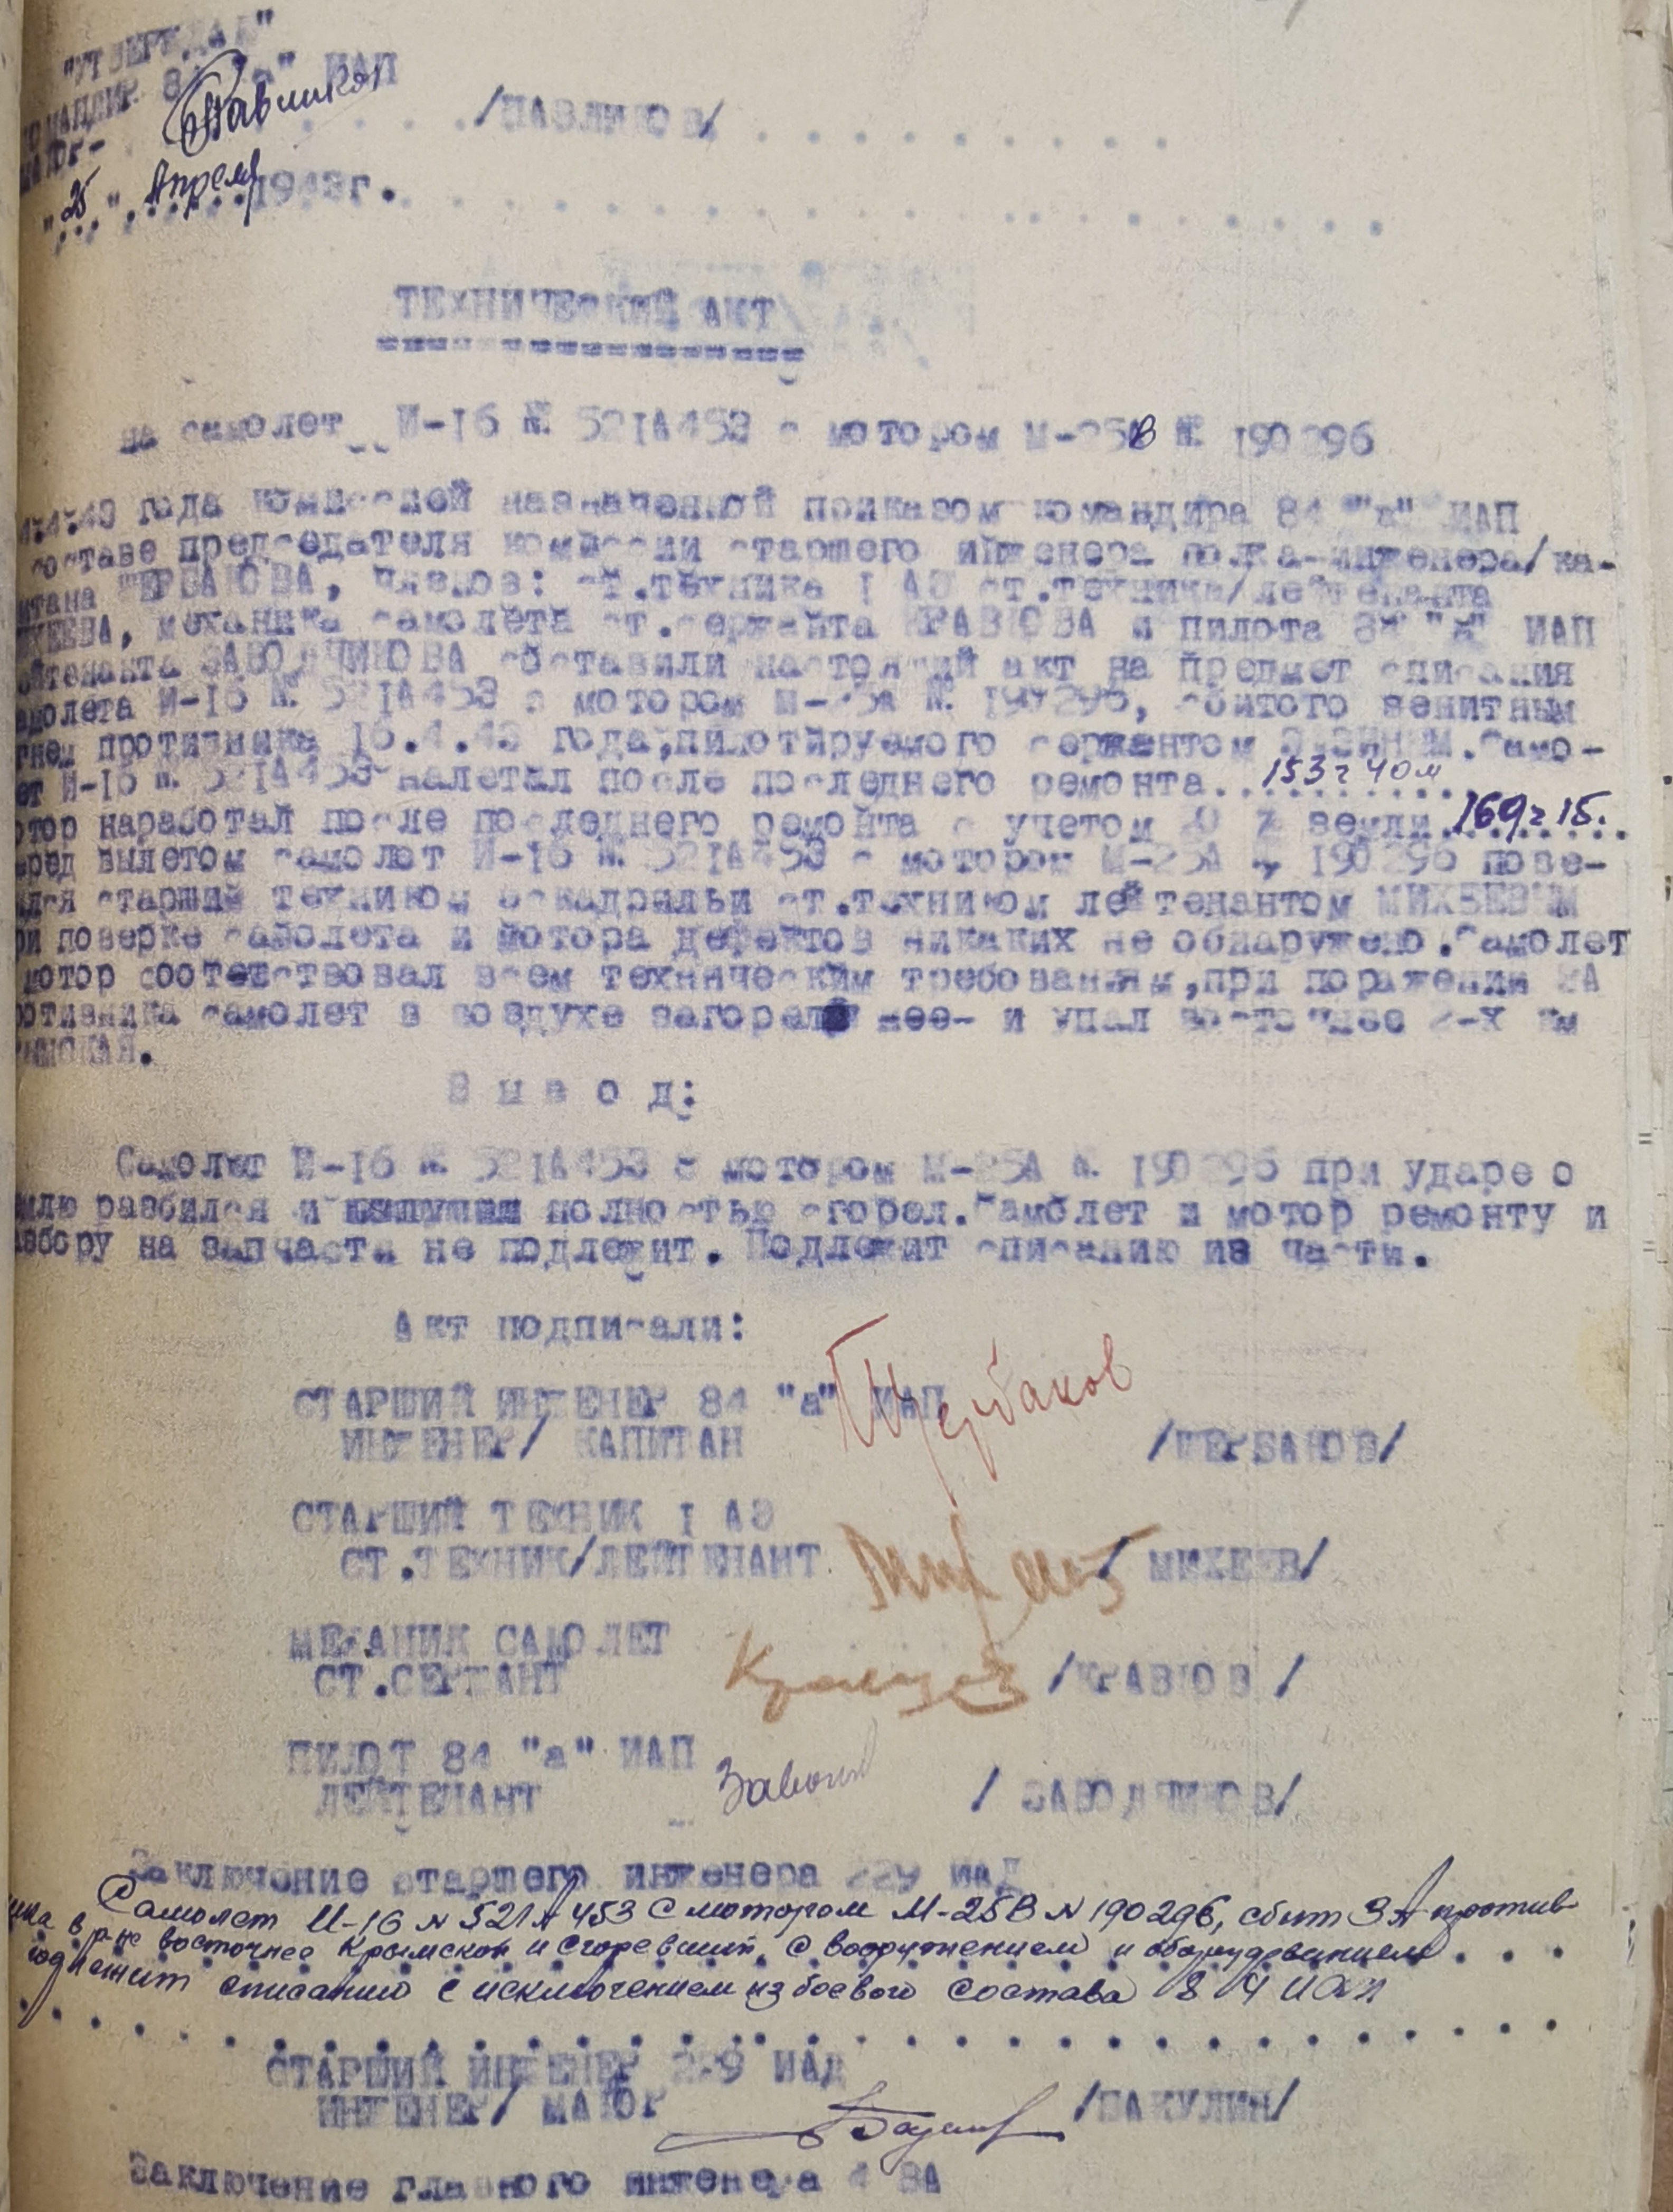 "УТВЕРЖДАЮ"
КОМАНДИР 84 "а" ИАП
МАЙОР- Павликов . . . . /ПАВЛИКОВ/ . . . . . . . . . .
"25" Апреля 1943г. . . . . . . . . . . . . . . . . .
ТЕХНИЧЕСКИЙ АКТ
на самолет И-16 № 521А453 с мотором М-25В № 190296
4.43 года комиссией назначенной приказом командира 84 "а" ИАП
составе председателя комиссии старшего инженера полка-инженера/ка-
итана ЩЕРБАКОВА, членов: ст.техника I АЭ ст.техника/лейтенанта
ИХЕЕВА, механика самолета ст.сержанта КРАВЦОВА и пилота 84 "а" ИАП
ейтенанта ЗАВОДЧИКОВА составили настоящий акт на предмет списания
амолета И-16 № 521А453 с мотором М-25А № 190296, сбитого зенитным
гнем противника 16.4.43 года,пилотируемого сержантом Само-
ет И-16 № 521А453 налетал после последнего ремонта..153ч 40м
отор наработал после последнего ремонта с учетом 20 % земли.169ч 15.
еред вылетом самолет И-16 № 521А453 с мотором М-25А № 190296 пове-
ялся старшим техником эскадрильи ст.техником лейтенантом МИХЕЕВЫМ
ри поверке самолета и мотора дефектов никаких не обнаружено.Самолет
мотор соответствовал всем техническим требованиям,при поражении ЗА
ротивника самолет в воздухе загорелся и упал восточнее 2-х км
РЫМСКАЯ.
В ы в о д:
Самолет И-16 № 521А453 с мотором М-25А № 190296 при ударе о
млю разбился и полностью сгорел.Самолет и мотор ремонту и
азбору на запчасти не подлежит. Подлежит списанию из части.
Акт подписали:
СТАРШИЙ ИНЖЕНЕР 84 "а" ИАП Щербаков
ИНЖЕНЕР/ КАПИТАН /ЩЕРБАКОВ/
СТАРШИЙ ТЕХНИК I АЭ
СТ.ТЕХНИК/ЛЕЙТЕНАНТ Михеев / МИХЕЕВ/
МЕХАНИК САМОЛЕТ
СТ.СЕРЖАНТ Кравцов /КРАВЦОВ /
ПИЛОТ 84 "а" ИАП
ЛЕЙТЕНАНТ / ЗАВОДЧИКОВ/
Заключение старшего инженера 229 ИАД
Самолет И-16 N 521А453 с мотором М-25В N 190296, сбит ЗА против-
ника в р-не восточнее Крымской и сгоревший, с вооружением и оборудованием . . .
подлежит списанию с исключением из боевого состава 84 ИАП
. . . . . . . . . . . . . . . . . . . . . . . . .
СТАРШИЙ ИНЖЕНЕР 229 ИАД
ИНЖЕНЕР/ МАЙОР /БАКУЛИН/
Заключение главного инженера 4 ВА